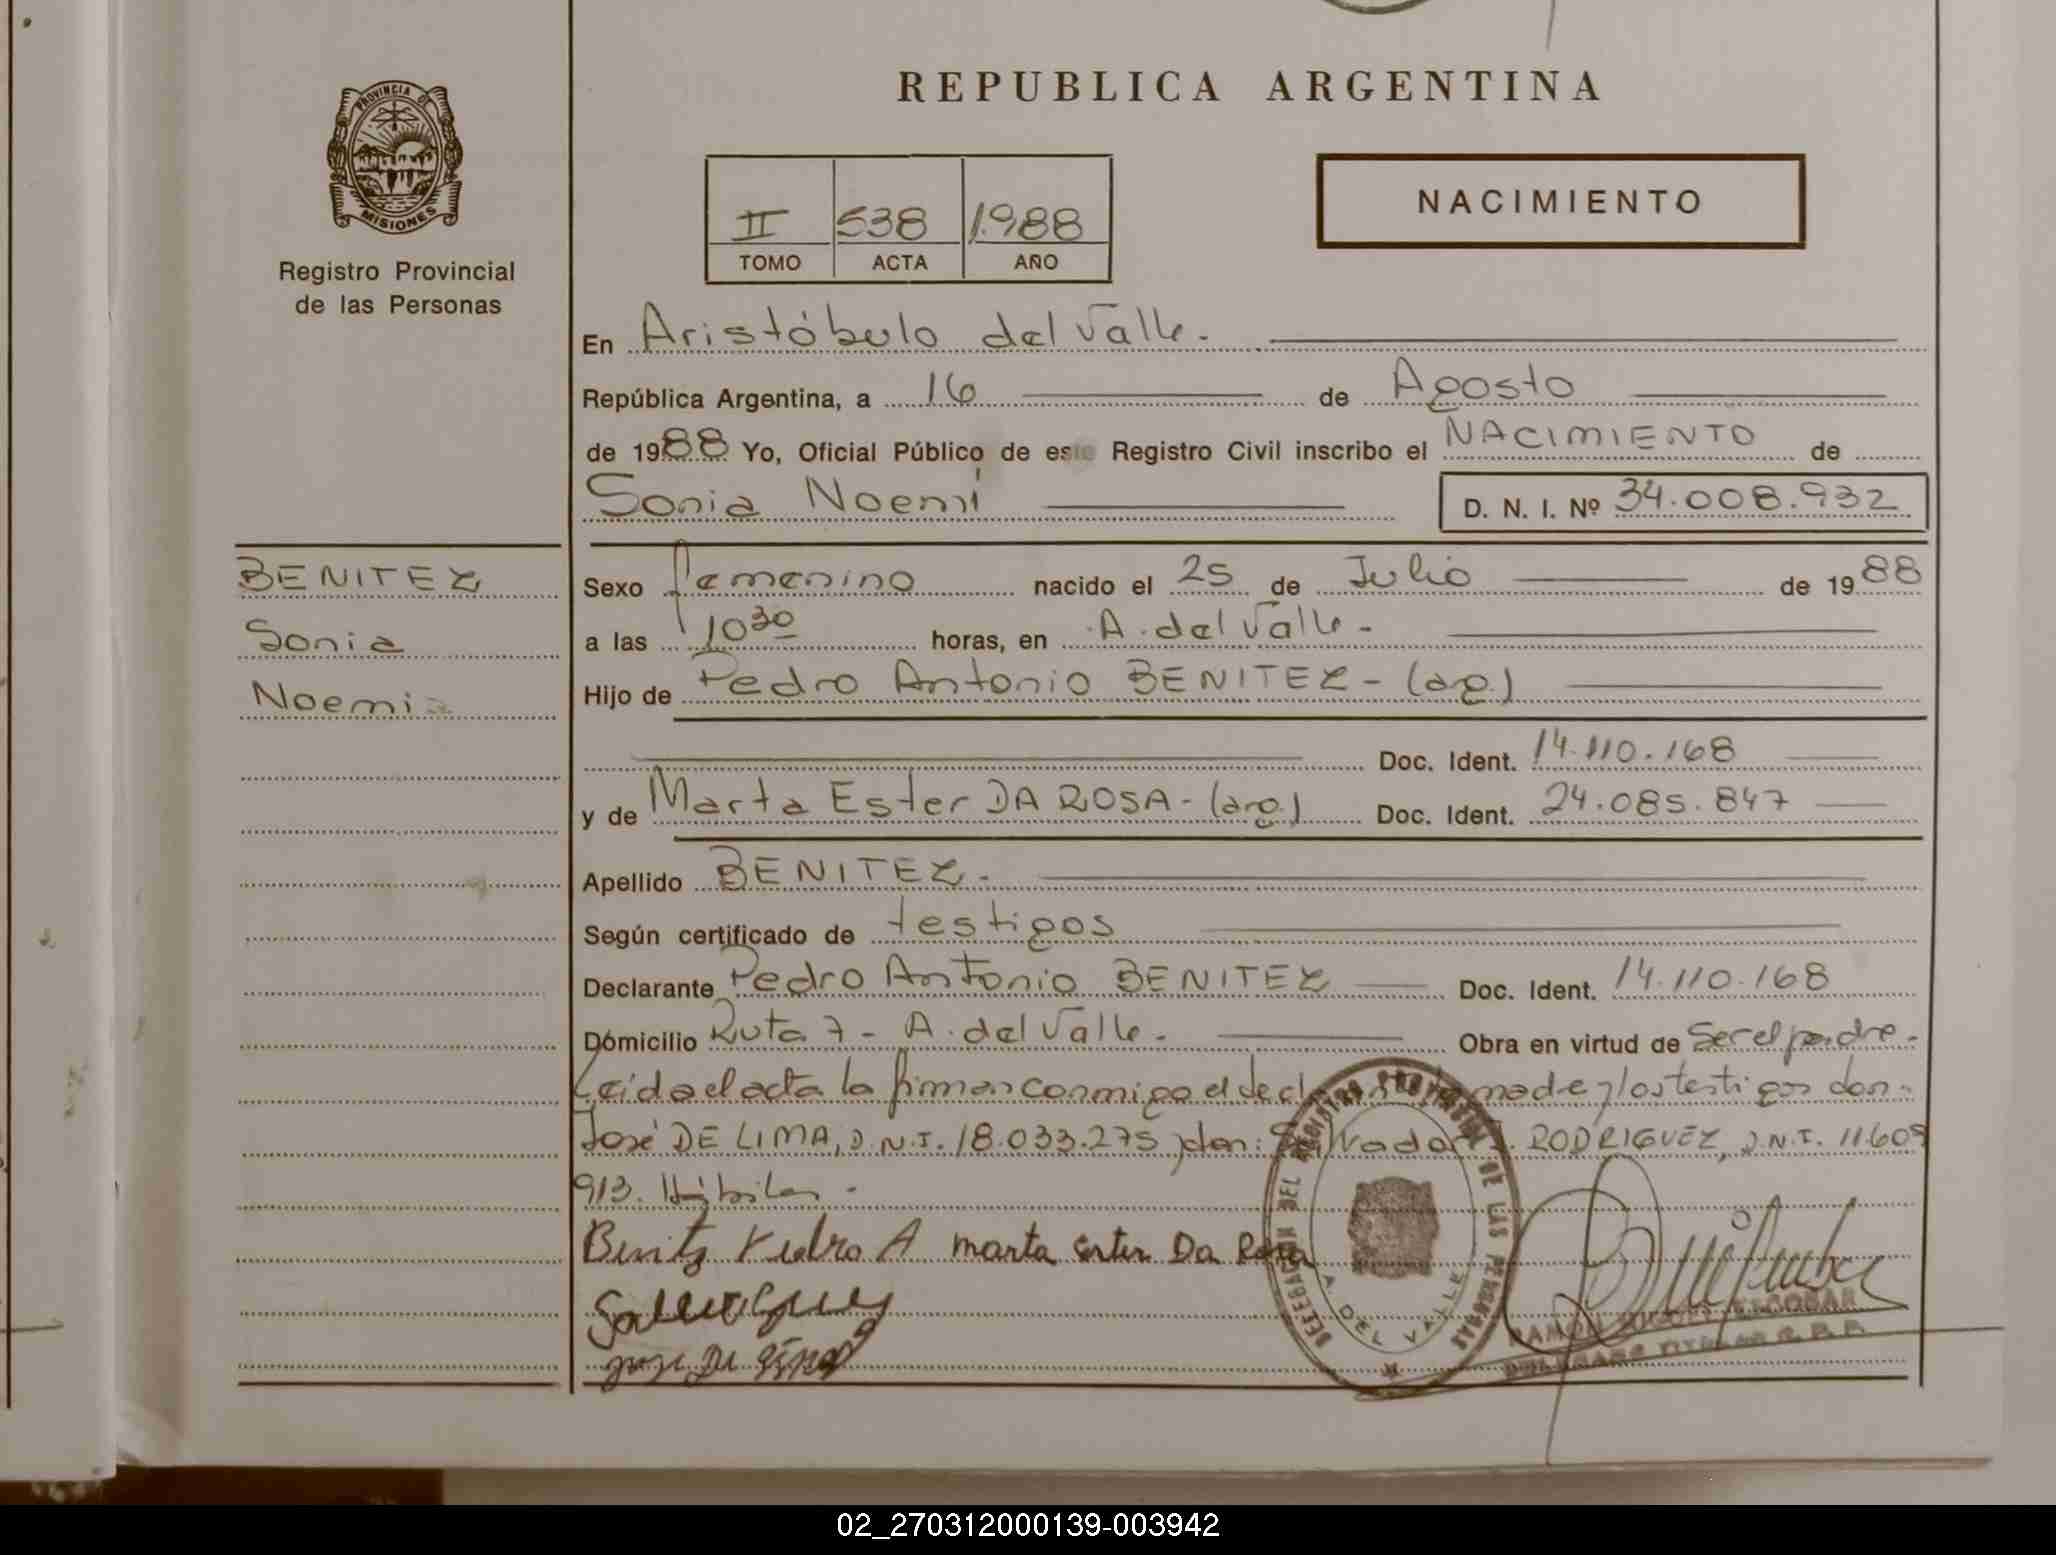 REPUBLICA ARGENTINA
PROVINCIA DE
MISIONES
Registro Provincial
de las Personas
II 538 1.988
TOMO ACTA AÑO
NACIMIENTO
En Aristóbulo del Valle.
República Argentina, a 16 de Agosto
de 1988 Yo, Oficial Público de este Registro Civil inscribo el NACIMIENTO de
Sonia Noemí D. N. I. Nº 34.008.932
BENITEZ
Sonia
Noemi
Sexo femenino nacido el 25 de Julio de 1988
a las 10 30 horas, en A. del Valle -
Hijo de Pedro Antonio BENITEZ - (arg.)
Doc. Ident. 14.110.168
y de Marta Ester DA ROSA - (arg.) Doc. Ident. 24.085.847
Apellido BENITEZ.
Según certificado de testigos
Declarante Pedro Antonio BENITEZ Doc. Ident. 14.110.168
Dómicilio Ruta 7 - A. del Valle. Obra en virtud de Ser el padre.
Leída el acta la firman conmigo el madre y los testigos don:
José DE LIMA, D.N.I. 18.033.275 y don: RODRIGUEZ, D.N.I. 11.609
913. Hábiles -
Benitz Pedro A Marta Ester Da Rosa
DELEGACION DEL REGISTRO PROVINCIAL DE LAS PERSONAS
A. DEL VALLE
RAMON ESCOBAR
02_270312000139-003942